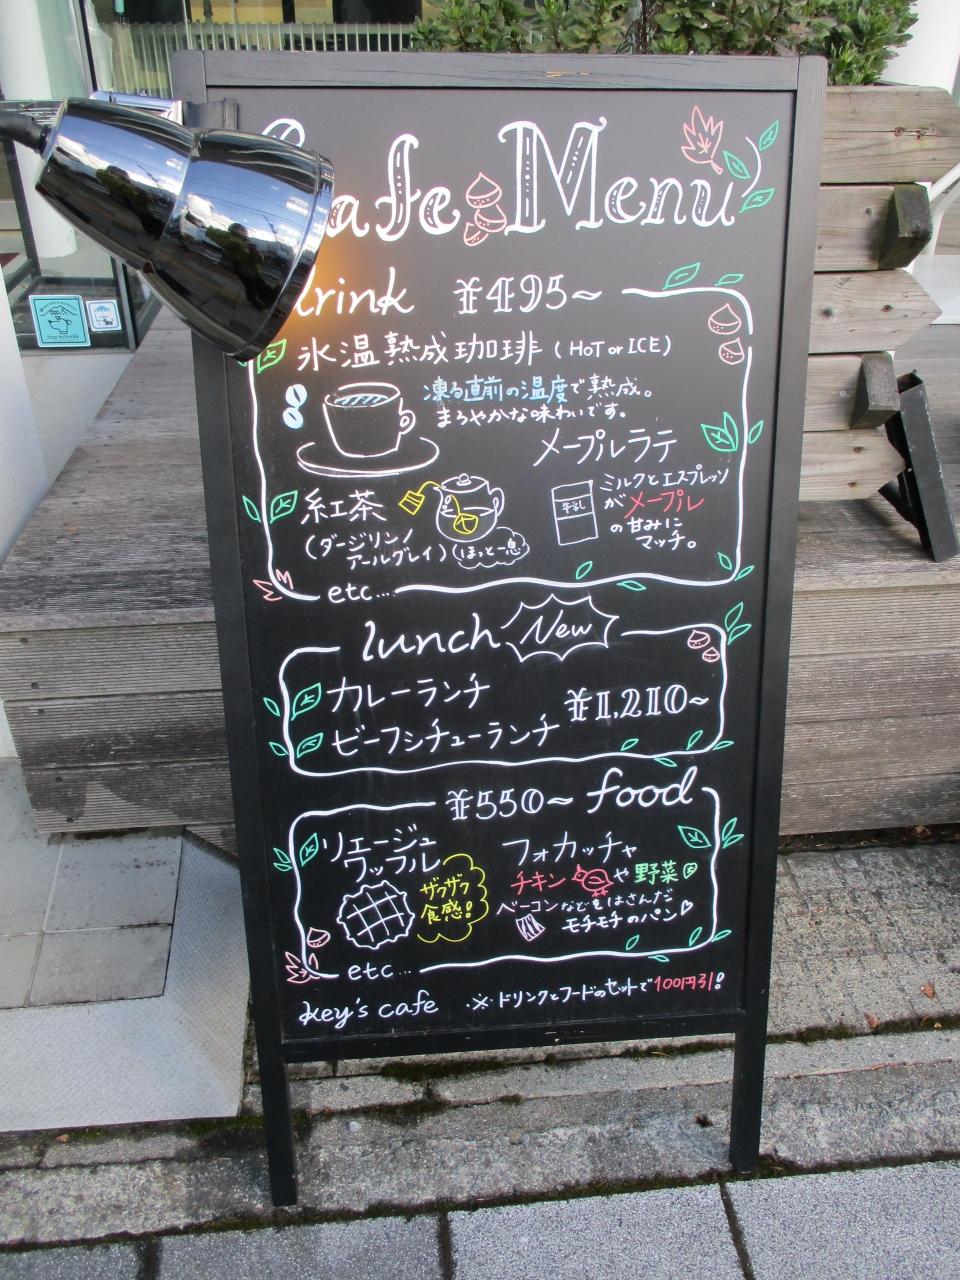 Cafe Menu
drink ¥495~
氷温熟成珈琲 (HOT or ICE)
凍る直前の温度で熟成。
まろやかな味わいです。
メープルラテ
ミルクとエスプレッソ
がメープル
の甘みに
マッチ。
牛乳
紅茶
(ダージリン/
アールグレイ)
ほっと一息
etc...
lunch New
カレーランチ
ビーフシチューランチ
¥1,210~
¥550~ food
リエージュ
ワッフル
ザクザク
食感!
フォカッチャ
チキンや野菜
ベーコンなどをはさんだ
モチモチのパン♡
etc...
key's cafe
※ドリンクとフードのセットで100円引!